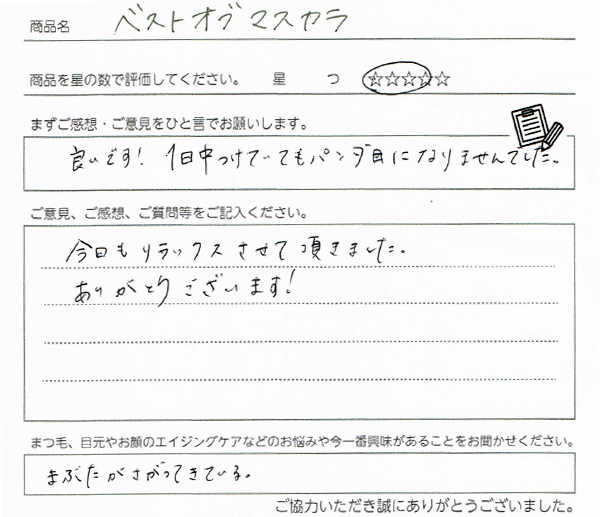 商品名 ベストオブマスカラ
商品を星の数で評価してください。 星 つ ☆☆☆☆☆
まずご感想・ご意見をひと言でお願いします。
良いです! 1日中つけていてもパンダ目になりませんでした。
ご意見、ご感想、ご質問等をご記入ください。
今日もリラックスさせて頂きました。
ありがとうございます!
まつ毛、目元やお顔のエイジングケアなどのお悩みや今一番興味があることをお聞かせください。
まぶたがさがってきている。
ご協力いただき誠にありがとうございました。